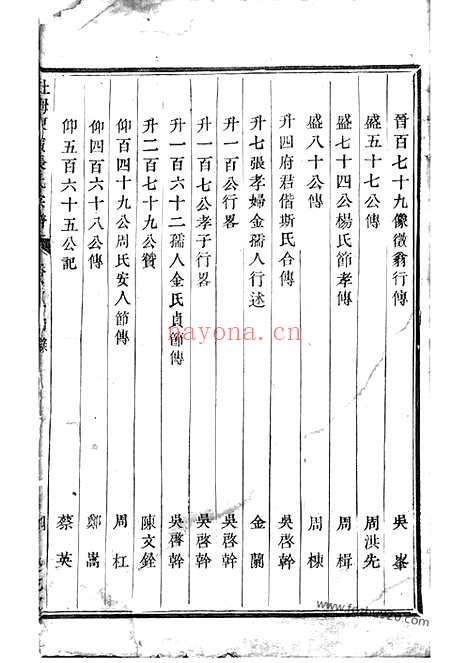 晉百七十九像徵翁行傳 吳峯
盛五十七公傳 周洪先
盛七十四公楊氏節孝傳 周楫
盛八十公傳 周棟
升四府君偕斯氏合傳 吳啓幹
升七張孝婦金孺人行述 金蘭
升一百公行畧 吳啓幹
升一百七公孝子行畧 吳啓幹
升一百六十二孺人金氏貞節傳 吳啓幹
升二百七十九公贊 陳文銓
仰百四十九公周氏安人節傳 周杠
仰四百六十八公傳 鄭嵩
仰五百六十五公記 蔡英
nayona.cn